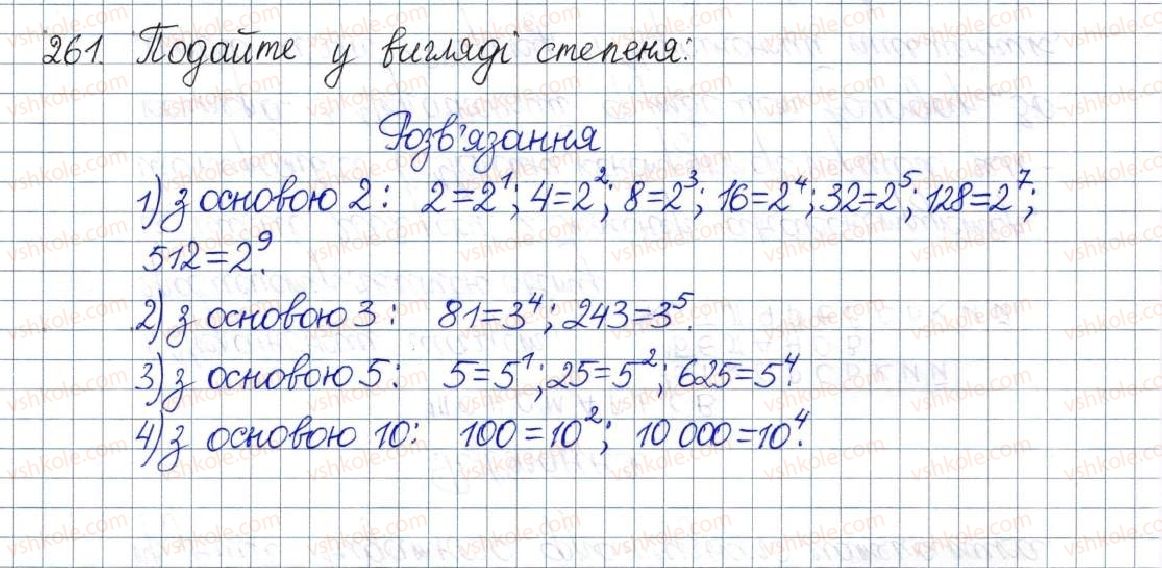 261. Подайте у вигляді степеня:
Розв'язання
1) з основою 2: 2=2¹; 4=2²; 8=2³; 16=2⁴; 32=2⁵; 128=2⁷;
512=2⁹.
2) з основою 3: 81=3⁴; 243=3⁵.
3) з основою 5: 5=5¹; 25=5²; 625=5⁴.
4) з основою 10: 100=10²; 10 000=10⁴.
vshkole.com